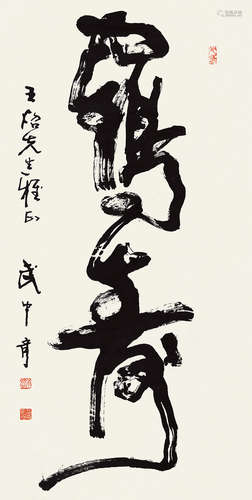 鹤之寿
王侣先生雅正
武中奇